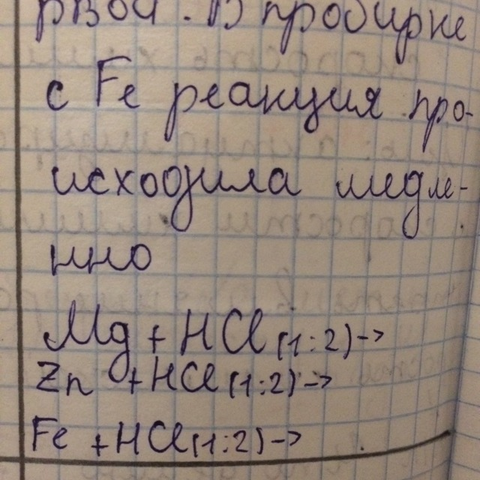 рвой. В пробирке
с Fe реакция про-
исходила медле-
нно
Mg + HCl (1:2)->
Zn + HCl (1:2)->
Fe + HCl (1:2)->